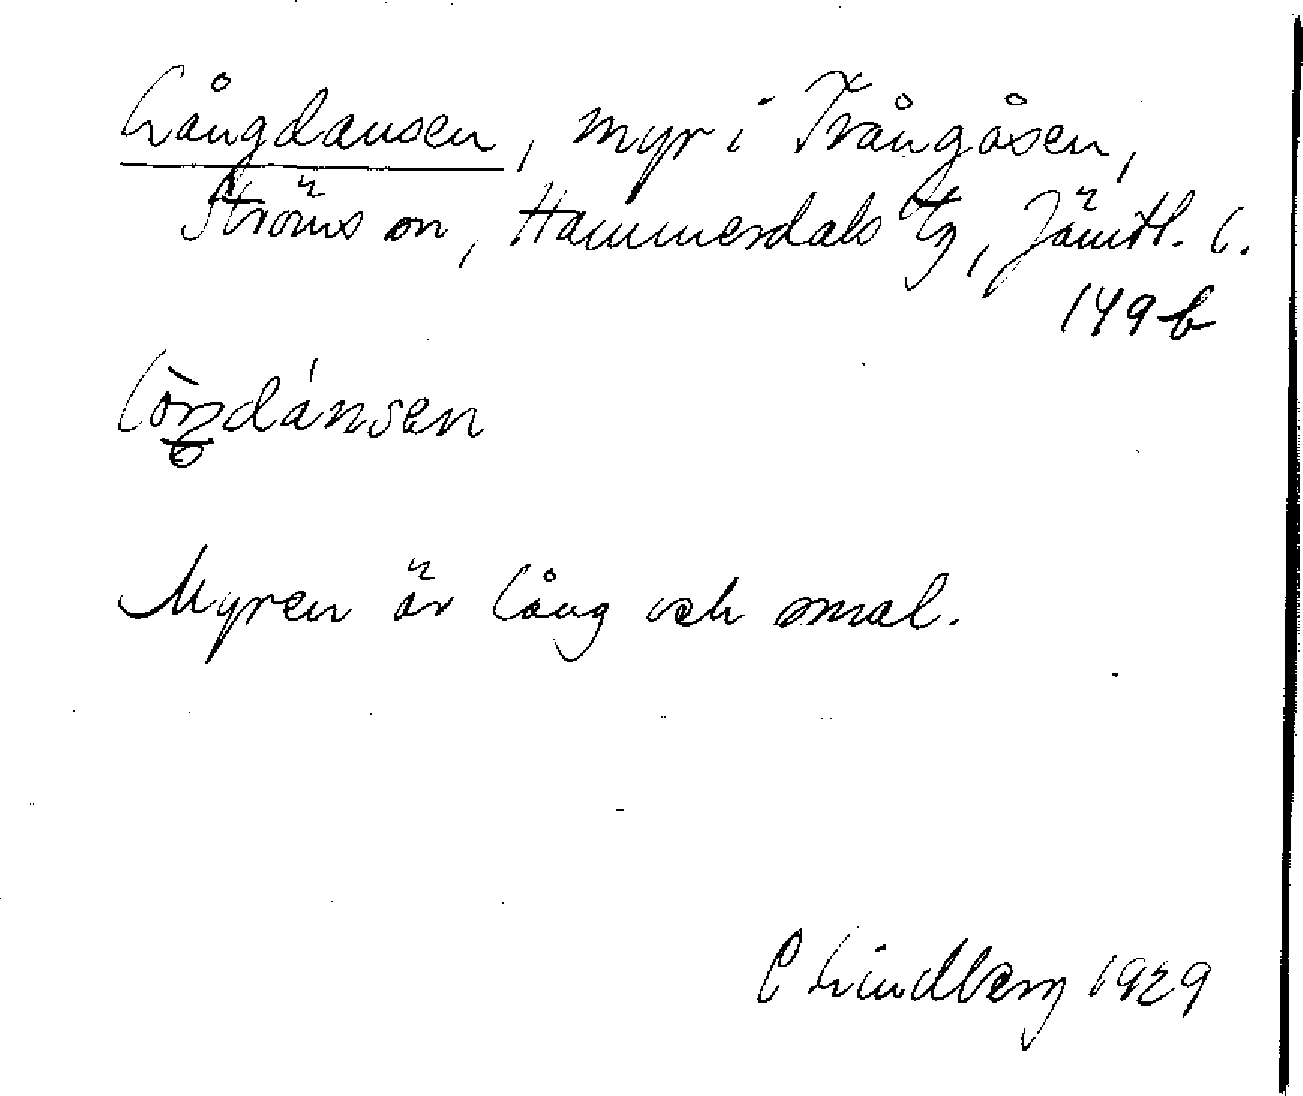 Långdansen, myr i Trångåsen,
Ströms sn, Hammerdals tg, Jämtl. l.
149 b
Myren är lång och smal.
C Lindberg 1929